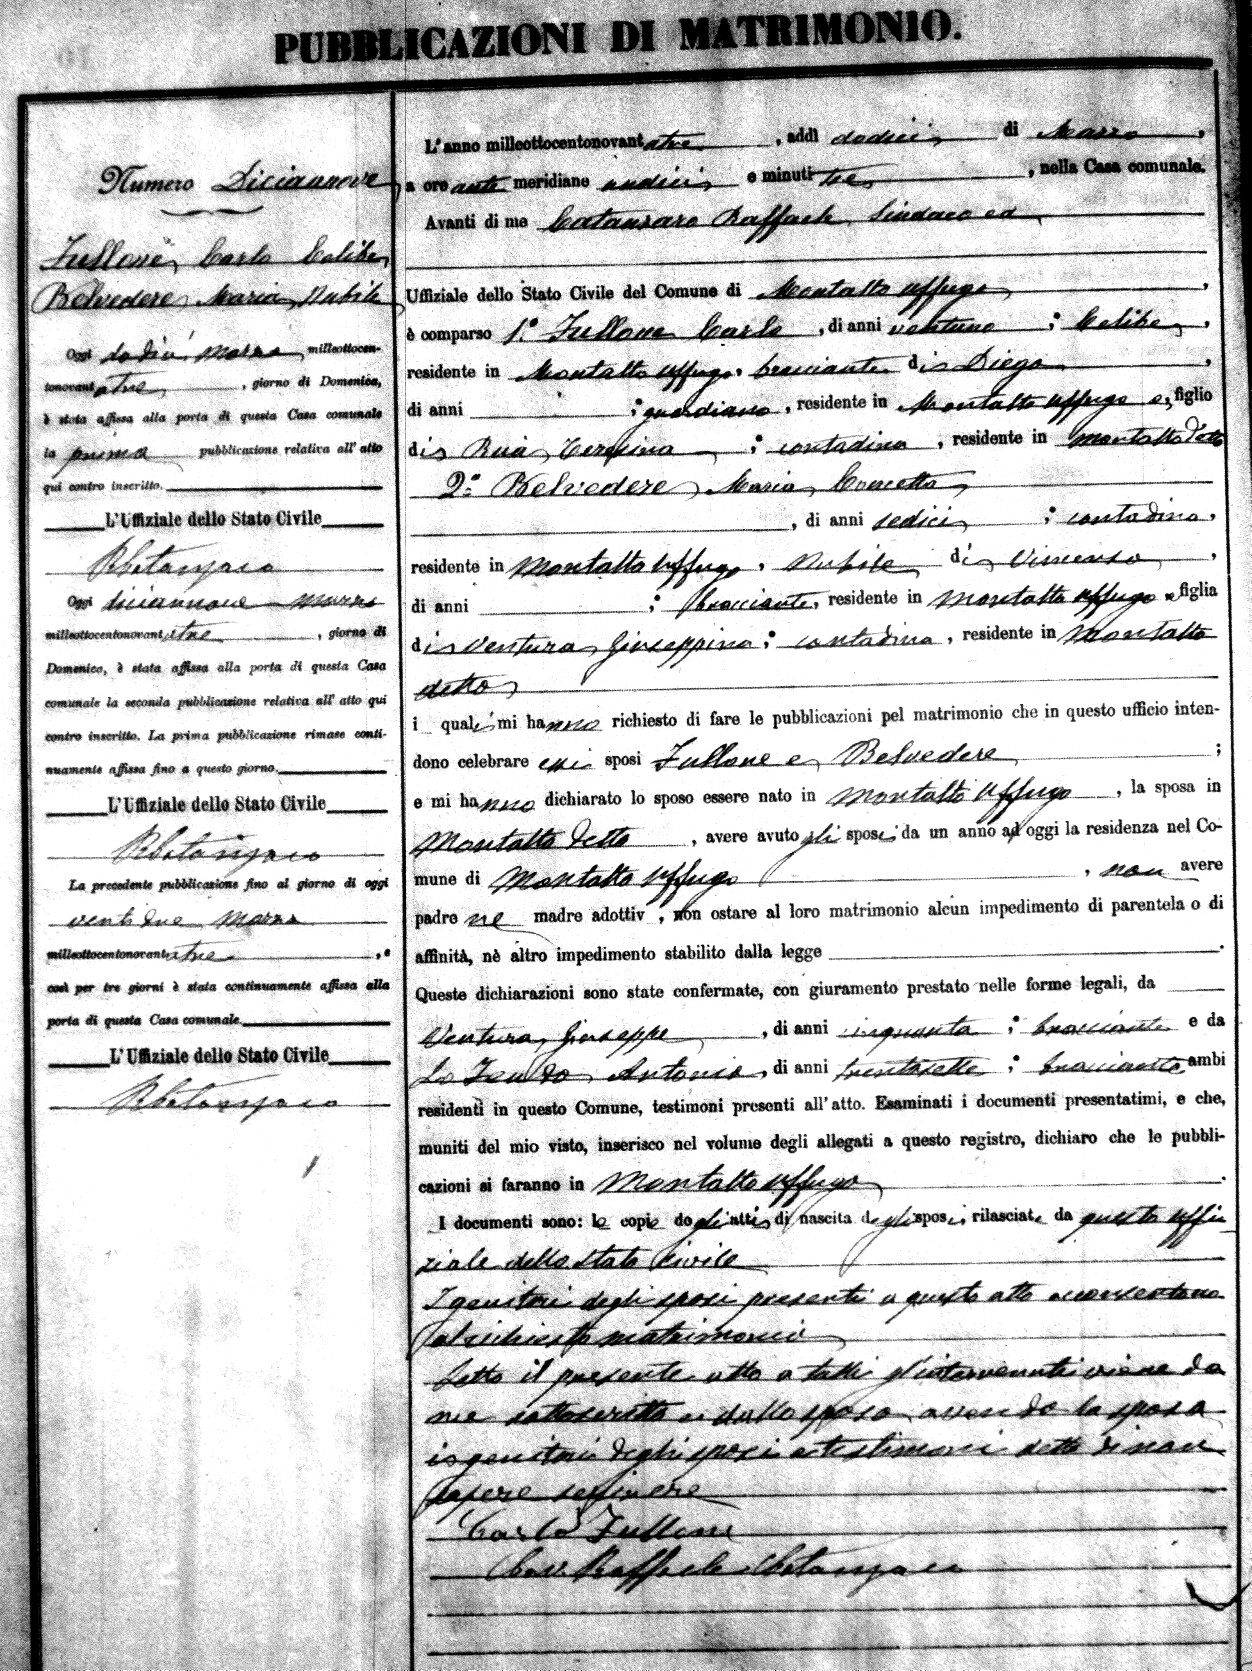 PUBBLICAZIONI DI MATRIMONIO.
Numero Diciannove
Fullone Carlo Celibe
Belvedere Maria Nubile
Oggi dodici marzo millottocen-
tonovantatre, giorno di Domenica,
è stata affissa alla porta di questa Casa comunale
la prima pubblicazione relativa all' atto
qui contro inscritto.
L'Uffiziale dello Stato Civile
RCatanzaro
Oggi diciannove marzo
milleottocentonovantatre, giorno di
Domenica, è stata affissa alla porta di questa Casa
comunale la seconda pubblicazione relativa all' atto qui
contro inscritto. La prima pubblicazione rimase conti-
nuamente affissa fino a questo giorno.
L'Uffiziale dello Stato Civile
RCatanzaro
La precedente pubblicazione fino al giorno di oggi
ventidue marzo
milleottocentonovantatre, e
così per tre giorni è stata continuamente affissa alla
porta di questa Casa comunale.
L'Uffiziale dello Stato Civile
RCatanzaro
L'anno milleottocentonovantatre, addì dodici di Marzo,
a ore anti meridiane undici e minuti tre, nella Casa comunale.
Avanti di me Catanzaro Raffaele Sindaco ed
Uffiziale dello Stato Civile del Comune di Montalto Uffugo,
è comparso 1.° Fullone Carlo, di anni ventuno; Celibe,
residente in Montalto Uffugo, bracciante di Diego
di anni ; guardiano, residente in Montalto Uffugo e, figlio
di Teresina ; contadina, residente in Montalto detto
2.° Belvedere Maria Concetta
, di anni sedici ; contadina,
residente in Montalto Uffugo, Nubile di Vincenzo,
di anni ; bracciante, residente in Montalto Uffugo e figlia
di Ventura Giuseppina; contadina, residente in Montalto
detto
i quali mi hanno richiesto di fare le pubblicazioni pel matrimonio che in questo ufficio inten-
dono celebrare essi sposi Fullone e Belvedere ;
e mi hanno dichiarato lo sposo essere nato in Montalto Uffugo, la sposa in
Montalto detto, avere avuto gli sposi da un anno ad oggi la residenza nel Co-
mune di Montalto Uffugo, non avere
padre nè madre adottiv , non ostare al loro matrimonio alcun impedimento di parentela o di
affinità, nè altro impedimento stabilito dalla legge .
Queste dichiarazioni sono state confermate, con giuramento prestato nelle forme legali, da
Ventura Giuseppe, di anni cinquanta; bracciante e da
Lo Antonio, di anni trentasette; bracciante ambi
residenti in questo Comune, testimoni presenti all'atto. Esaminati i documenti presentatimi, e che,
muniti del mio visto, inserisco nel volume degli allegati a questo registro, dichiaro che le pubbli-
cazioni si faranno in Montalto Uffugo.
I documenti sono: le copie degli atti di nascita degli sposi, rilasciate da questo uffi-
ziale dello Stato civile
I genitori degli sposi presenti a questo atto acconsentono
al richiesto matrimonio
Letto il presente atto a tutti gl'intervenuti viene da
me sottoscritto e dallo sposo avendo la sposa
i genitori degli sposi e testimoni detto di non
sapere scrivere
Carlo Fullone
Cav. Raffaele Catanzaro